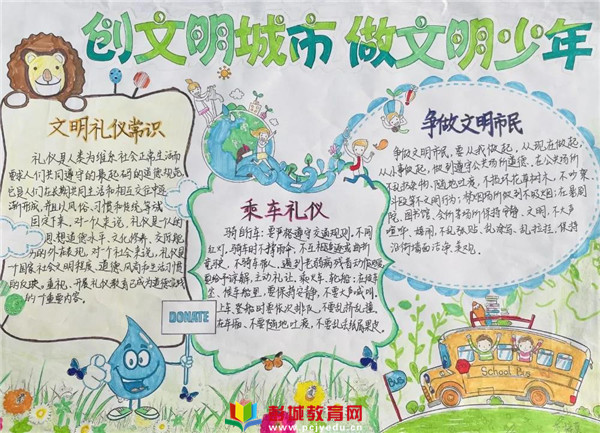 创文明城市 做文明少年
文明礼仪常识
礼仪是人类为维系社会正常生活而
要求人们共同遵守的最起码的道德规范,
它是人们在长期共同生活和相互交往中逐
渐形成,并且以风俗、习惯和传统等方式
固定下来。对一个人来说,礼仪是一个人的
思想道德水平、文化修养、交际能
力的外在表现,对一个社会来说,礼仪是
一个国家社会文明程度、道德风尚和生活习惯
的反映。重视、开展礼仪教育已成为道德实践
的一个重要内容。
乘车礼仪
骑自行车:要严格遵守交通规则,不闯
红灯,骑车时不撑雨伞,不互相追逐或曲折
竞驶,不骑车带人。遇到老弱病残者动作迟缓,
要给予谅解,主动礼让。乘火车、轮船:在候车
室、候车船里,要保持安静,不要大声喊叫。
上车、登船时要依次排队,不要乱挤乱撞。
在车厢、不要随地吐痰,不要乱丢纸屑果皮。
争做文明市民
争做文明市民,要从我做起,从现在做起,
从小事做起,做到遵守公共场所道德,在公共场所
不乱扔杂物、随地吐痰,不损坏花草树木,不吵架
院、图书馆、会议等场所保持安静、文明,不大声
喧哗、嬉闹,不乱张贴、乱涂写、乱拉挂,保持
沿街墙面洁净美观。
DONATE
School Bus
BUS
彭城教育网
www.pcjyedu.cn